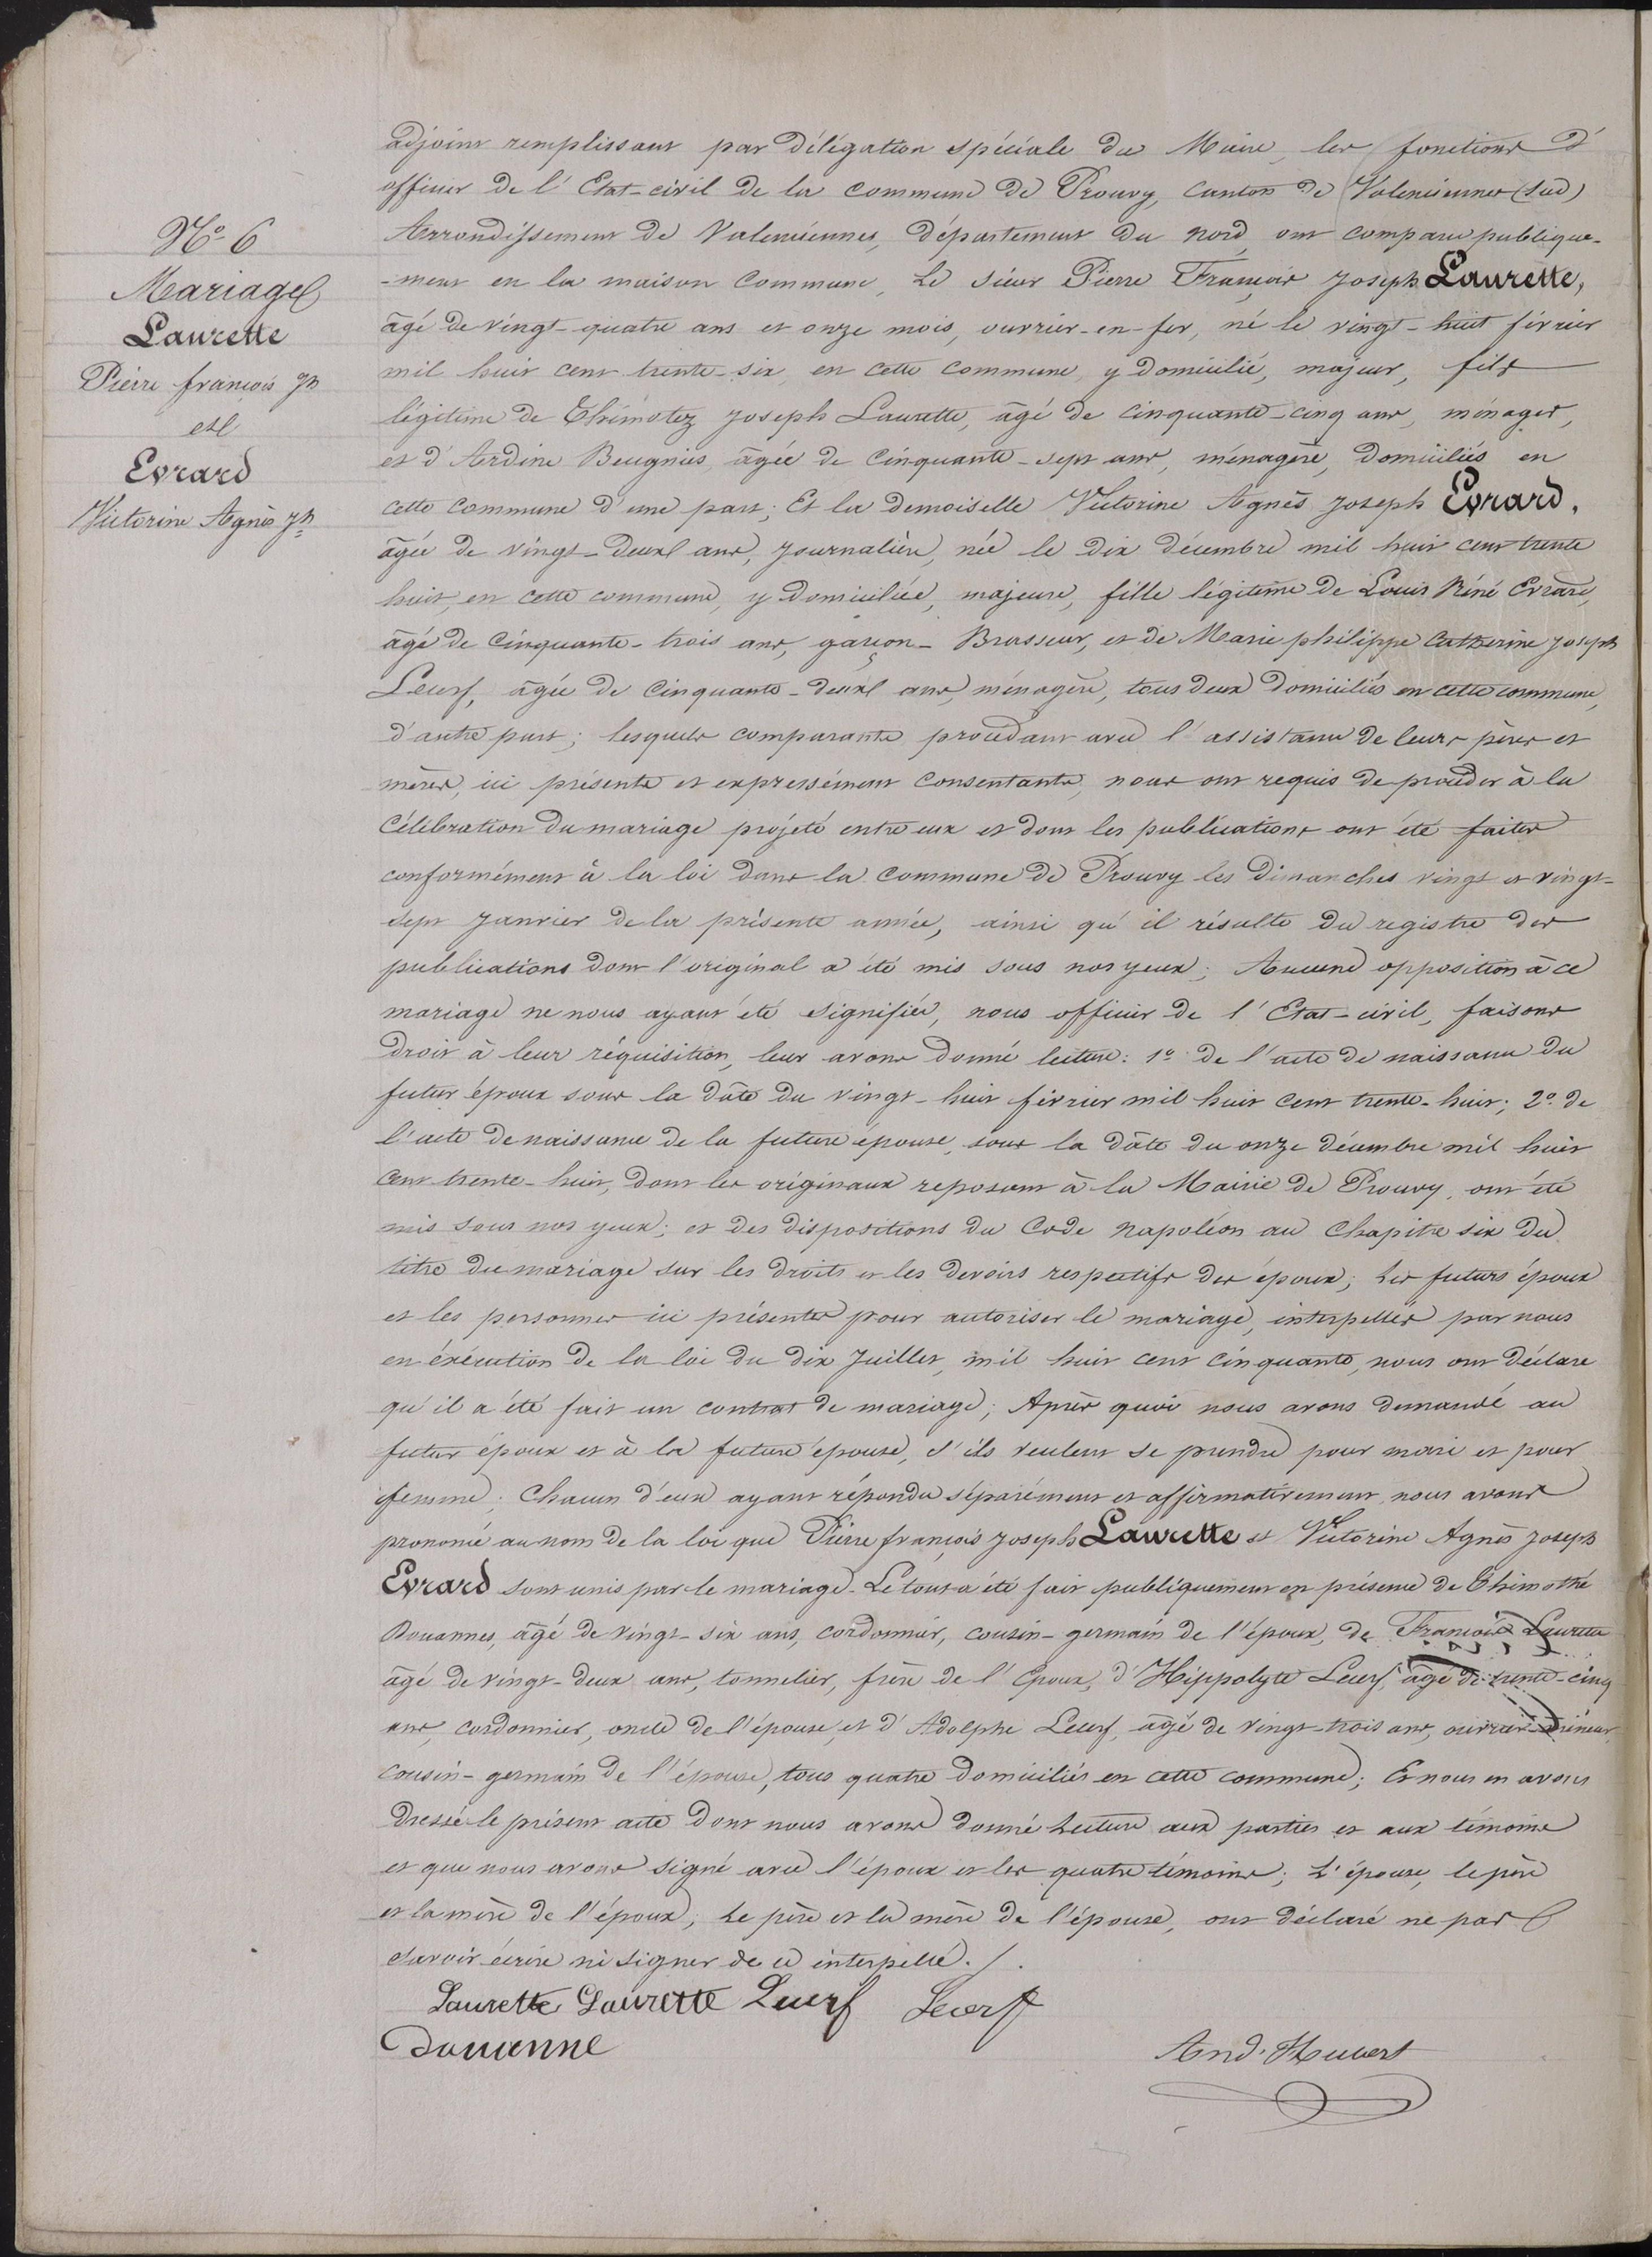 N° 6
Mariage
Laurette
Pierre françois Jh
et
Evrard
Victorine Agnès Jh
adjoint remplissant par délégation spéciale du Maire, les fonctions d'
officier de l'Etat-civil de la commune de Prouvy, canton de Valenciennes (sud)
Arrondissement de Valenciennes, département du nord, ont comparu publique-
-ment en la maison commune, Le sieur Pierre François Joseph Laurette,
âgé de vingt-quatre ans et onze mois, ouvrier-en-fer, né le vingt-huit février
mil huit cent trente-six, en cette commune, y domicilié, majeur, fils
légitime de Thimotez Joseph Laurette, âgé de cinquante-cinq ans, ménager,
et d'Ardine Beugnies, âgée de cinquante-sept ans, ménagère, domiciliés en
cette commune d'une part; Et la demoiselle Victorine Agnès Joseph Evrard,
âgée de vingt-deux ans, journalière, née le dix décembre mil huit cent trente
huit, en cette commune, y domiciliée, majeure, fille légitime de Louis Réné Evrard,
âgé de cinquante-trois ans, garçon-Brasseur, et de Marie philippe Catherine Joseph
Lecerf, âgée de cinquante-deux ans, ménagère, tous deux domiciliés en cette commune,
d'autre part; lesquels comparants procédant avec l'assistance de leurs pères et
mères, ici présents et expressément consentants, nous ont requis de procéder à la
célébration du mariage projeté entre eux et dont les publications ont été faites
conformément à la loi dans la commune de Prouvy les dimanches vingt et vingt-
sept Janvier de la présente année, ainsi qu'il résulte du registre des
publications dont l'original a été mis sous nos yeux; Aucune opposition à ce
mariage ne nous ayant été signifiée, nous officier de l'Etat-civil, faisons
droit à leur réquisition, leur avons donné lecture: 1° de l'acte de naissance du
futur époux sous la dâte du vingt-huit février mil huit cent trente-huit; 2° de
l'acte de naissance de la future épouse, sous la dâte du onze décembre mil huit
cent trente-huit, dont les originaux reposant à la Mairie de Prouvy, ont été
mis sous nos yeux; et des dispositions du Code Napoléon au Chapitre six du
titre du mariage sur les droits et les devoirs respectifs des époux; Les futurs époux
et les personnes ici présentes pour autoriser le mariage, interpellés par nous
en éxécution de la loi du dix Juillet, mil huit cent cinquante, nous ont déclaré
qu'il a été fait un contrat de mariage; Après quoi nous avons demandé au
futur époux et à la future épouse, s'ils veulent se prendre pour mari et pour
femme; Chacun d'eux ayant répondu séparément et affirmativement, nous avons
prononcé au nom de la loi que Pierre françois Joseph Laurette et Victorine Agnès Joseph
Evrard sont unis par le mariage. Le tout a été fait publiquement en présence de Thimothé
Douannes, âgé de vingt-six ans, cordonnier, cousin-germain de l'époux, de François Laurette
âgé de vingt-deux ans, tonnelier, frère de l'Epoux, d'Hippolyte Lecerf, âgé de trente-cinq
ans, cordonnier, oncle de l'épouse, et d'Adolphe Lecerf, âgé de vingt-trois ans, ouvrier-mineur,
cousin-germain de l'épouse, tous quatre domiciliés en cette commune; Et nous en avons
dressé le présent acte dont nous avons donné Lecture aux parties et aux témoins
et que nous avons signé avec l'époux et les quatre témoins; L'épouse, le père
et la mère de l'époux; Le père et la mère de l'épouse, ont déclaré ne pas
savoir écrire ni signer de ce interpellé./.
Laurette Laurette Lecerf Lecerf
Douanne
And. Hubert